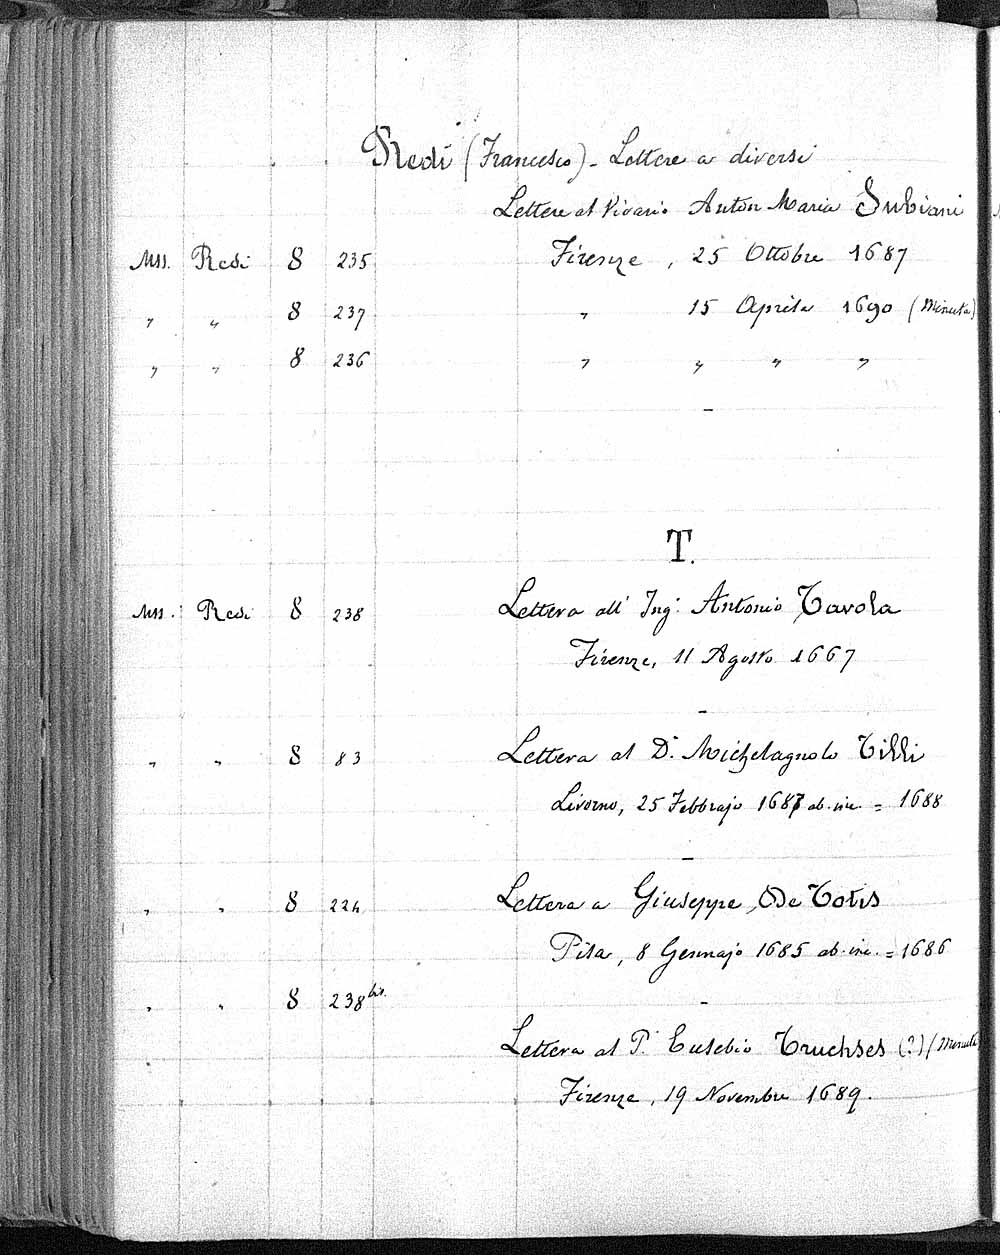 Redi (Francesco) - Lettere a diversi
Lettere al Vicario Anton Maria Subiani
Mss. Redi 8 235 Firenze, 25 Ottobre 1687
" " 8 237 " 15 Aprile 1690 (Minuta)
" " 8 236 " " " "
-
T.
Mss. Redi 8 238 Lettera all' Ing. Antonio Tavola
Firenze, 11 Agosto 1667
-
" " 8 83 Lettera al D. Michelagnolo Tilli
Livorno, 25 Febbrajo 1687 ab. inc. = 1688
-
" " 8 224 Lettera a Giuseppe De Totis
Pisa, 8 Gennajo 1685 ab. inc. = 1686
" " 8 238 bis. -
Lettera al P. Eusebio Truchses (?) (Minuta
Firenze, 19 Novembre 1689.